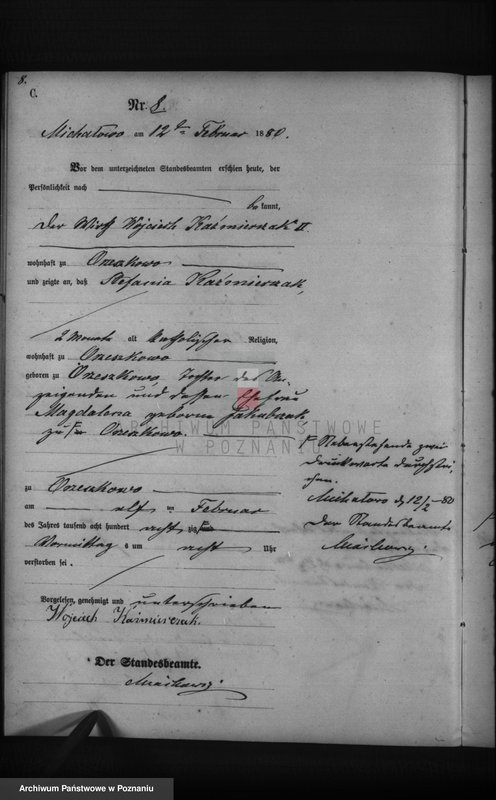 8.
C.
Nr. 8.
Michałowo am 12ten Februar 1880.
Vor dem unterzeichneten Standesbeamten erschien heute, der
Persönlichkeit nach
be kannt,
der Wirth Wojciech Kaźmierczak II
wohnhaft zu Orzeszkowo
und zeigte an, daß Stefania Kaźmierczak,
2 Monate alt katholischer Religion,
wohnhaft zu Orzeszkowo
geboren zu Orzeszkowo Tochter des An-
zeigenden und dessen Ehefrau
Magdalena geborene Jakubczak
zu Orzeszkowo.
zu Orzeszkowo
am elf ten Februar
des Jahres tausend acht hundert acht zig
Vormittag s um acht Uhr
verstorben sei.
Vorgelesen, genehmigt und unterschrieben
Wojciech Kaźmierczak.
Der Standesbeamte.
Nebenstehende zwei
Druckworte durchstri-
chen.
Michałowo d 12/2 80
Der Standesbeamte
ARCHIWUM PAŃSTWOWE
W POZNANIU
Archiwum Państwowe w Poznaniu